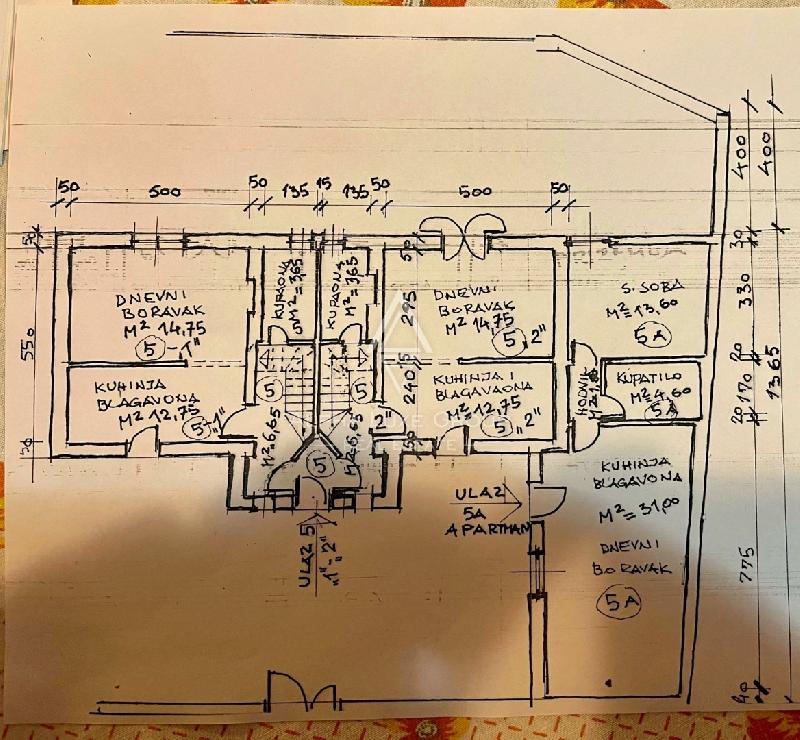 50
500
50
135
15
135
50
500
50
400
400
50
550
30
DNEVNI
BORAVAK
M² 14,75
5 - "1"
KUHINJA
BLAGAVONA
M² 12,75
5 "1"
KUPAONA
M² = 3,65
KUPAONA
M² = 3,65
5
M² = 6,65
5
M² = 6,65
5
"2"
50
295
15
240
50
DNEVNI
BORAVAK
M² 14,75
5 "2"
KUHINJA I
BLAGAVAONA
M² = 12,75
5 "2"
S. SOBA
M² = 13,60
5A
HODNIK
KUPATILO
M² 4,60
5A
KUHINJA
BLAGAVONA
M² = 31,00
DNEVNI
BORAVAK
5A
ULAZ
5A
APARTMAN
ULAZ 5
"1" - "2"
30
330
20
170
20
1365
775
40